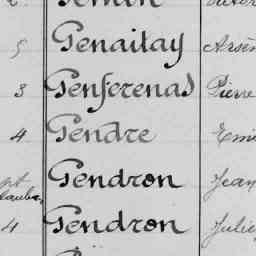 5 Genaitay Arsèn
3 Genferenas Pierre
4 Gendre Emi
Gendron Jean
4 Gendron Julie